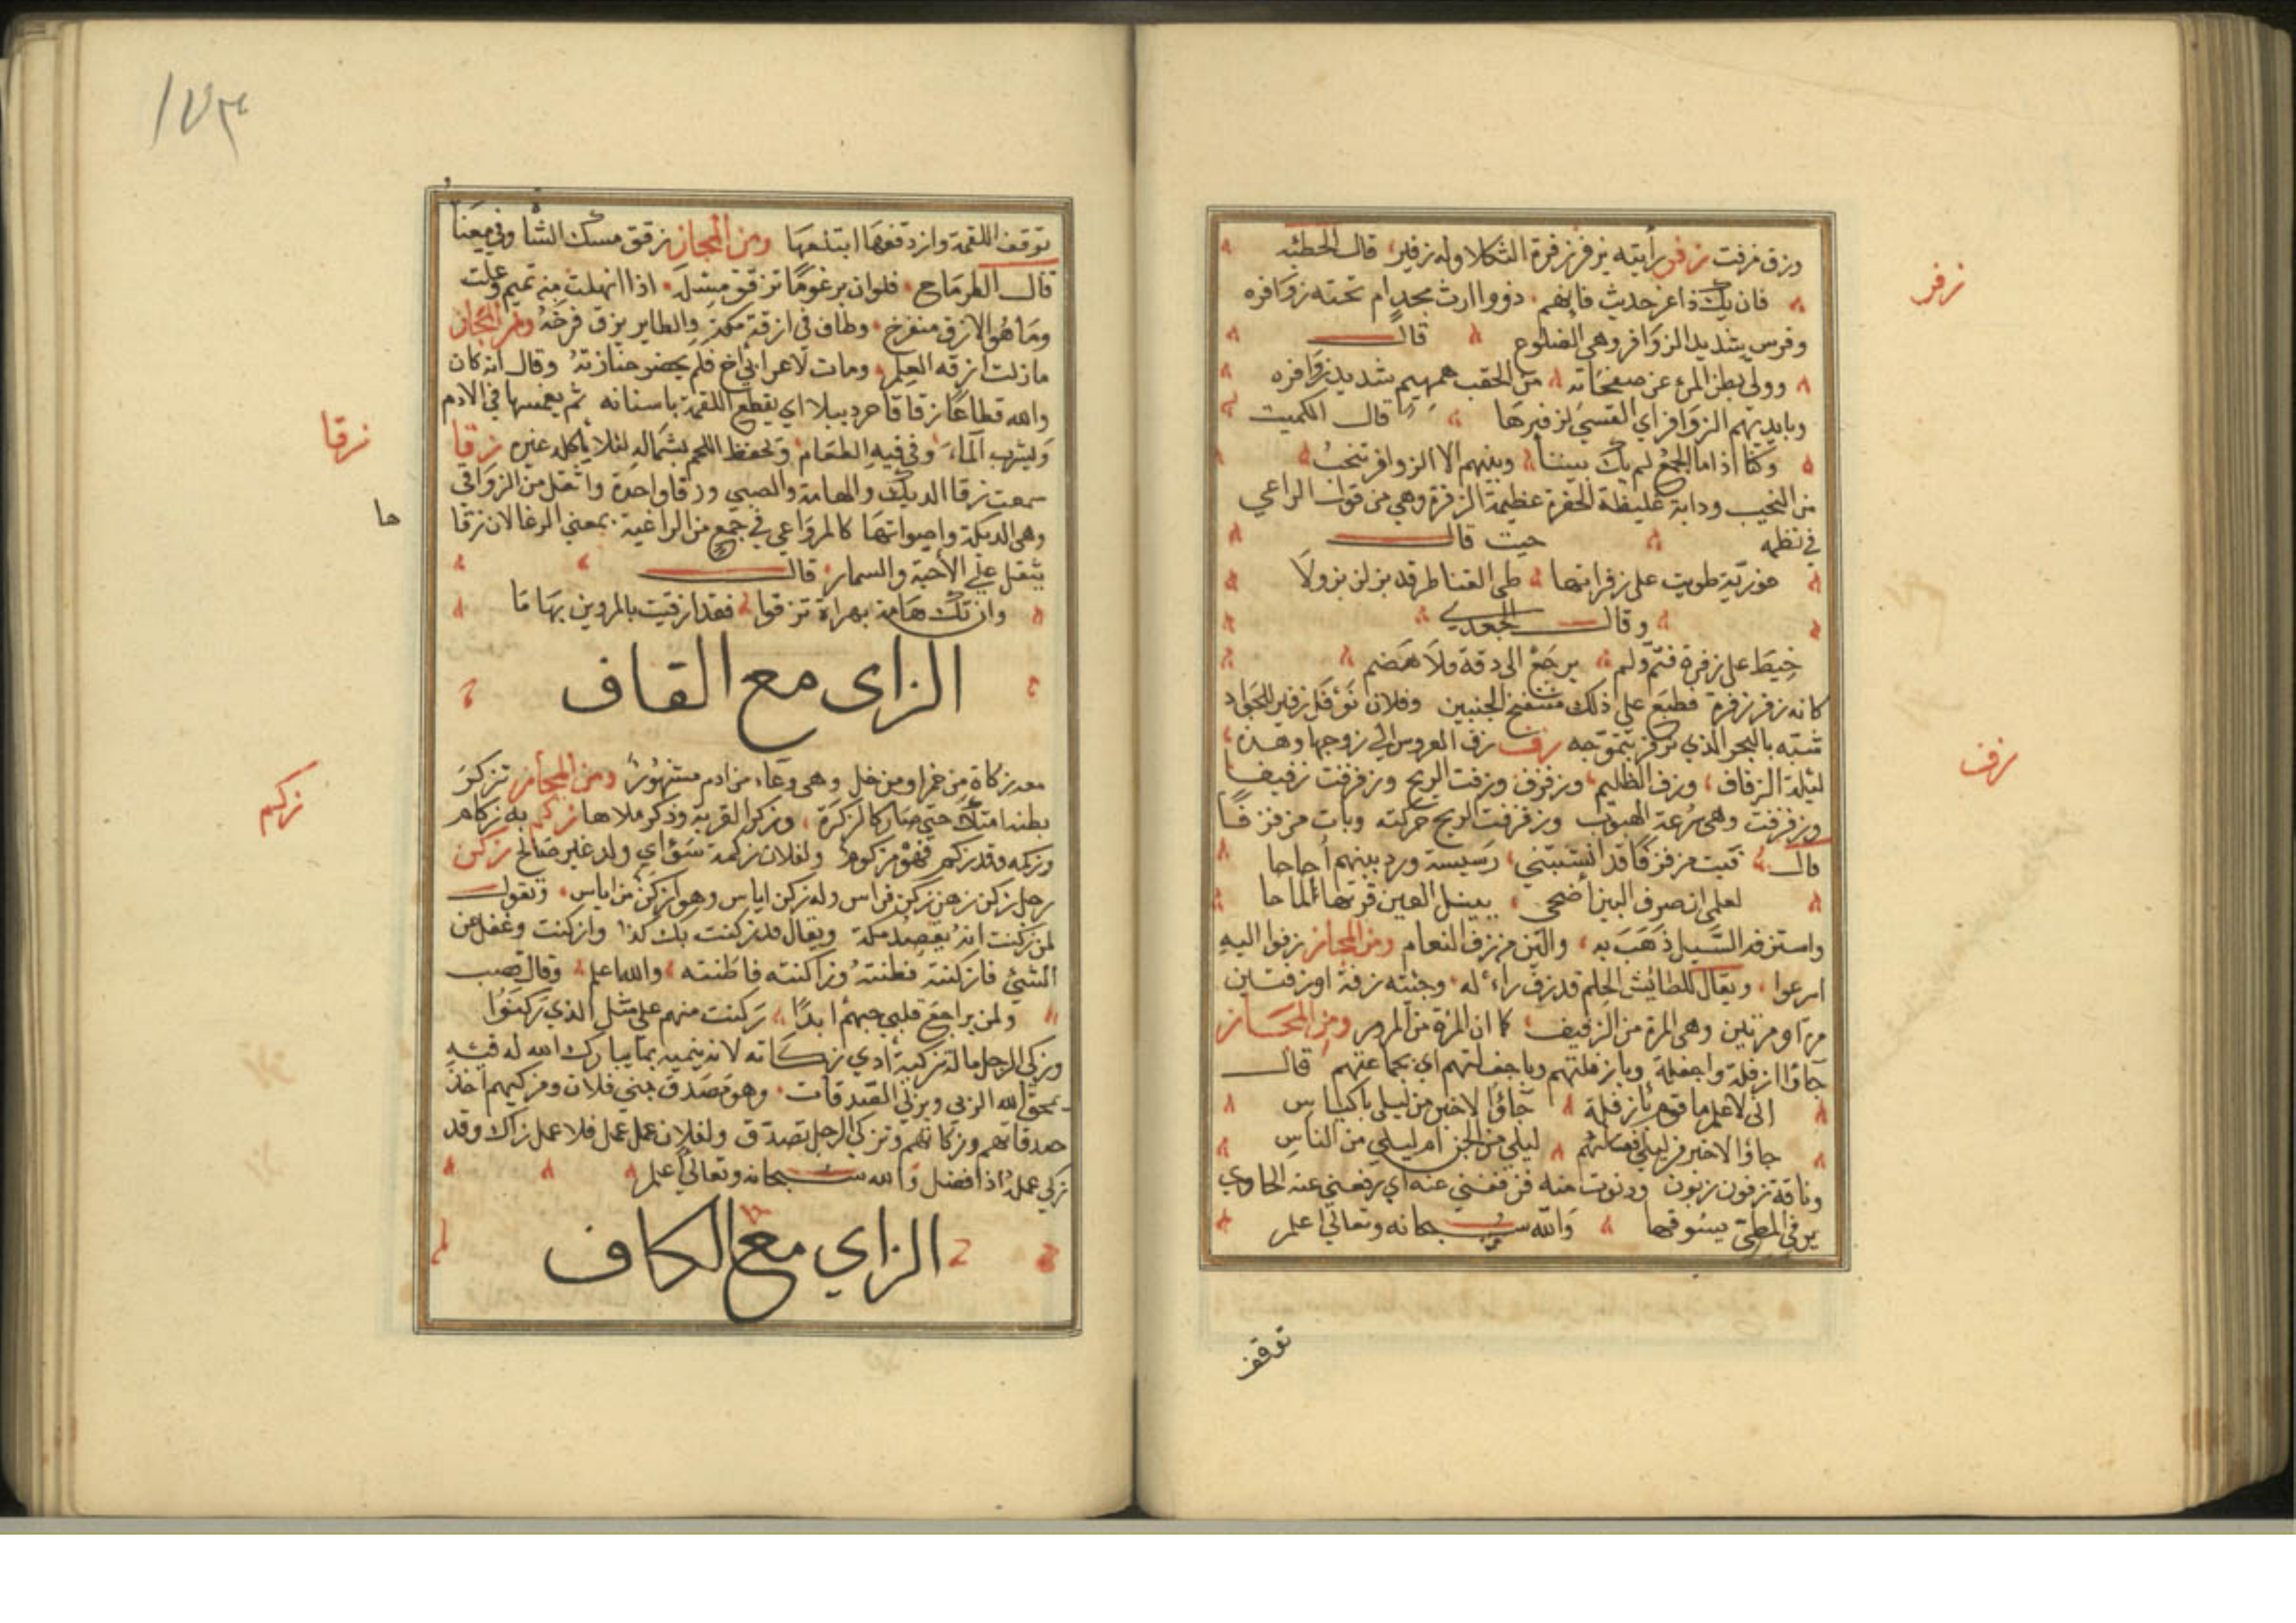 وزق مزفت زفر رأيته يزفر زفرة الثكلا وله زفير قال الحطئه
فان يك ذا عز حديث فانهم ذووا ارث مجد ام تخته زوافره
وفرس شديد الزوافر وهي الضلوع قال
وولى بطن المرء عن صفحاته من الحقب همهيم شديد زوافره
وبايديهم الزوافر اي القسي لزفيرها قال الكميت
وكنا اذا ما الجمع لم يك بيننا وبينهم الا الزوافر تنحب
من النحيب ودابة غليظة الحفرة عظيمة الزفرة وهي من قول الراعي
في نظمه حيث قال
حوزية طويت على زفراتها طى القناطر قد بزلن بزولا
وقال الجعدي
خيط على زفرة فتم ولم يرجع الى دقة ولا هضم
كانه زفر زفرة فطبع على ذلك منتفخ الجنبين وفلان نوفل زفير للجواد
شبه بالبحر الذي يزفر بتموجه زف زف العروس الى زوجها وهذه
ليلة الزفاف وزف الظليم وزفزف وزفت الريح وزفزفت زفيفا
وزفزفت وهي سرعة الهبوب وزفزفت الريح حركته وبات مزفزفا
قال فبت مزفزفا قد انشبتني رسيسة ورد بينهم أجاحا
لعلمي ان صرف البين أضحى ينيل العين قرتها الماحا
واستزفه السيل ذهب به والين من زف النعام ومن المجاز زفوا اليه
اسرعوا ويقال للطائش الحلم قد زف راءله وجئته زفة اوزفتين
مرة او مرتين وهي المرة من الزفيف كما ان المرة من المرور ومن المجاز
جاؤا ازفلة واجفلة وبازفلتهم وباجفلتهم اي بجماعتهم قال
انى لاعلم ما قوم بازفلة جاؤا لاخبر من ليلى باكياس
جاؤا لاخبر من ليلى فقلت لهم ليلى من الجن ام ليلى من الناس
وناقة زفون زبون ودنوت منه فزفنني عنه اي رفعني عنه الحاوي
يزفي المطى يسوقها والله سبحانه وتعالى اعلم
توقف
زفر
زف
١٧٣
توقف اللقمة وازدقفها ابتلعها ومن المجاز زقق مسك الشا وفي معنا
قال الطرماح فلو ان برغوثا تزقق مسكه اذا انهلت منه تميم وعلت
وما هو الا زق منفرخ وطاف في ازقة مكة والطاير يزق فرخه ومن المجاز
ما زلت ازقه العلم ومات لاعرابي أخ فلم يحضر جنازته وقال انه كان
والله قطاعا زقاقا جردبيلا اي يقطع اللقمة باسنانه ثم يغمسها في الادم
وليشرب الماء وفي فيه الطعام ويحفظ اللحم بشماله لئلا ياكله غيره زقا
سمعت زقا الديك والهامة والصبي وزقا واحدة واثقل من الزواقي
وهي الديكة واصواتها كالرواعي في جمع من الراغية بمعنى الرغا لان زقا
يثقل على الأحبة والسمار قال
وان تك هامة بهراة تزقوا فقد ازقيت بالمروين هاما
الزاى مع القاف
معه زكاة من خمر او من خل وهي وعاء من ادم مشهور ومن المجاز تزكر
بطنه امتلأ حتى صار كالزكرة وزكر القربة وذكر ملاها زكم به زكام
وزكمه وقد زكم فهو مزكوم ولفلان زكمة سؤ اي ولد غير صالح زكن
رجل زكن زهن زكن فراس وله زكن اياس وهو ازكن من اياس وتقول
لمن زكنت انه يقصد مكة ويقال قد زكنت بك كذا وازكنت وغفل عن
الشئ فازكنته فطنته وزاكنته فاطنته والله اعلم وقال قصب
ولمن يراجع قلبي حبهم ابدا زكنت منهم على مثل الذي زكنوا
وزكى الرجل ماله تزكية أدي زكاته لانه ينميه بما يبارك الله له فيه
يمحق الله الربي ويربي الصدقات وهو مصدق بني فلان ومزكيهم اخذ
صدقاتهم وزكاتهم وتزكى الرجل تصدق ولفلان عمل عمل فلا عمل زاك وقد
زكى عمله اذا فضل والله سبحانه وتعالى اعلم
الزاي مع الكاف
زقا
حا
زكم